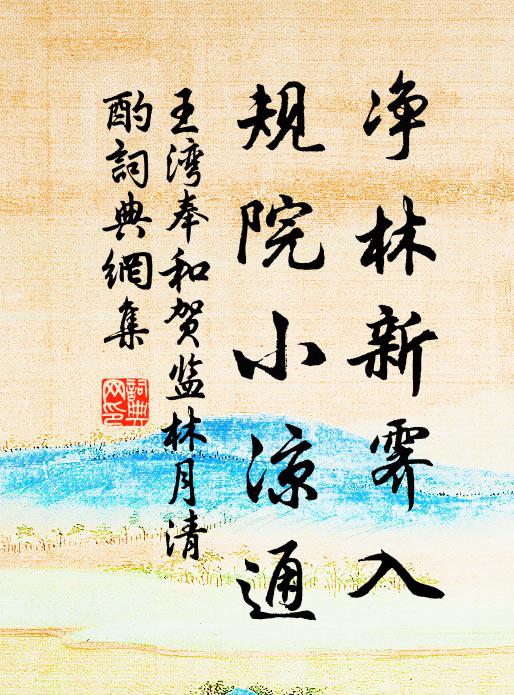 净林新霁入
规院小凉通
王湾奉和贺监林月清
酌詞典網集
詞典
网印